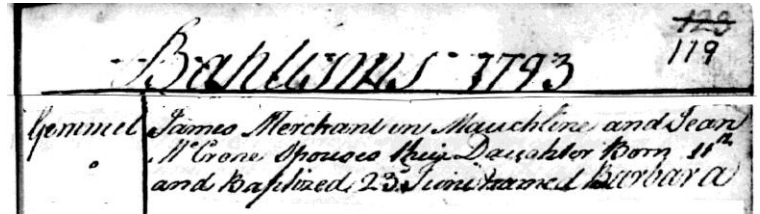 123
119
Baptisms 1793
Gemmel
James Merchant in Mauchline and Jean
McCrone Spouses their Daughter Born 11th
and Baptized 23d June named Barbara